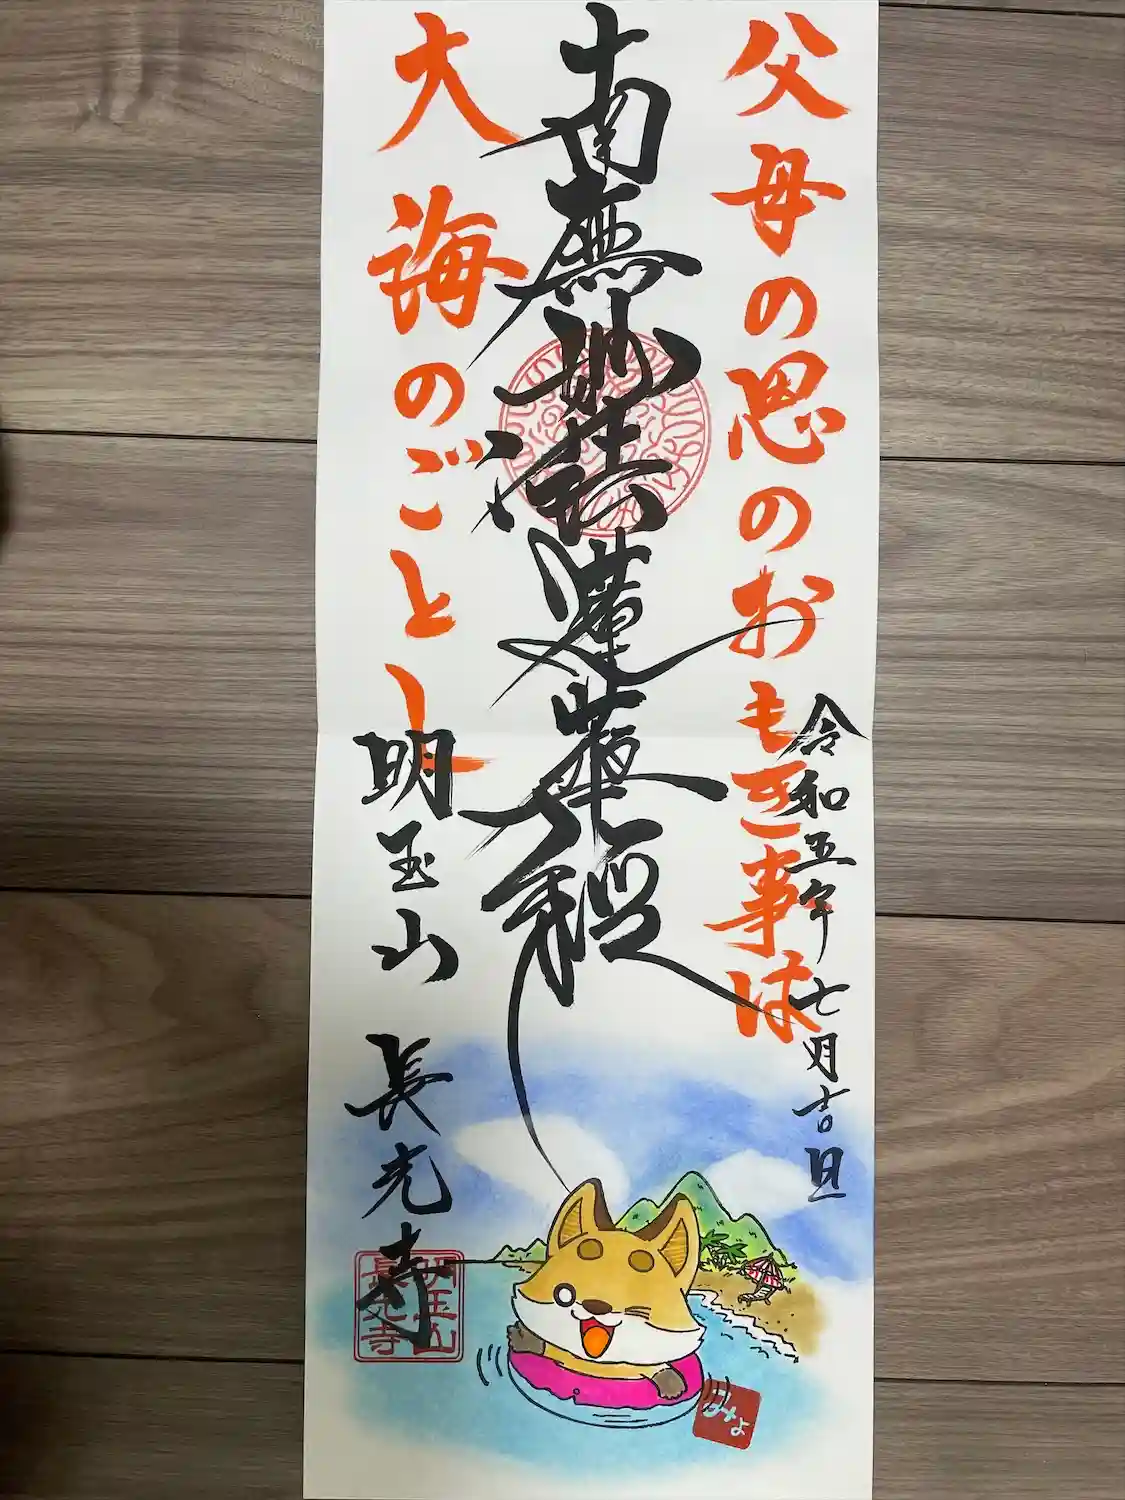 父母の恩のおもき事は
令和五年七月吉旦
南無妙法蓮華経
大海のごとし
明王山 長光寺
明王山
長光寺
みよ